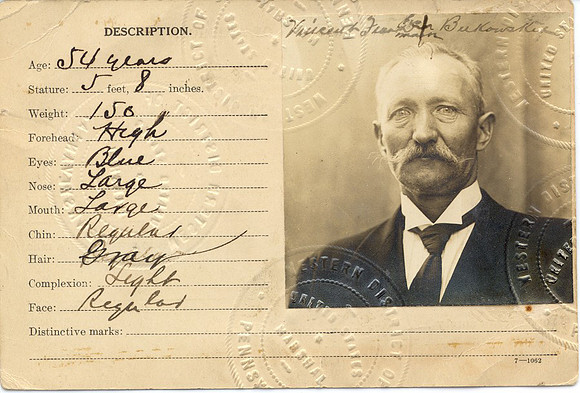 DESCRIPTION.
Age: 54 years
Stature: 5 feet, 8 inches.
Weight: 150 "
Forehead: High
Eyes: Blue
Nose: Large
Mouth: Large
Chin: Regular
Hair: Gray
Complexion: Light
Face: Regular
Distinctive marks:
7—1062
Vincent
WESTERN DISTRICT OF
UNITED STATES
MARSHAL
PENNSYL
WESTERN
UNITED